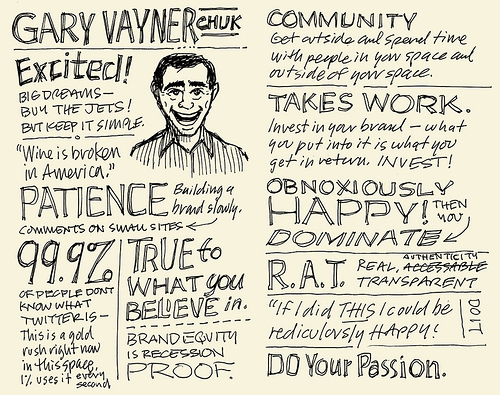 GARY VAYNERCHUK
Excited!
BIG DREAMS—
BUY THE JETS!
BUT KEEP IT SIMPLE.
"Wine is broken
in America."
PATIENCE
Building a
brand slowly.
COMMENTS ON SMALL SITES
99.9%
OF PEOPLE DON'T
KNOW WHAT
TWITTER IS—
This is a gold
rush right now
in this space.
1% uses it every
second
TRUE to
WHAT you
BELIEVE in.
BRAND EQUITY
IS RECESSION
PROOF.
COMMUNITY
Get outside and spend time
with people in your space and
outside of your space.
TAKES WORK.
Invest in your brand – what
you put into it is what you
get in return. INVEST!
OBNOXIOUSLY
HAPPY! THEN
YOU
DOMINATE
R.A.T.
AUTHENTICITY
REAL, ACCESSABLE
TRANSPARENT
"If I did THIS I could be
rediculously HAPPY!
DO IT
DO Your Passion.